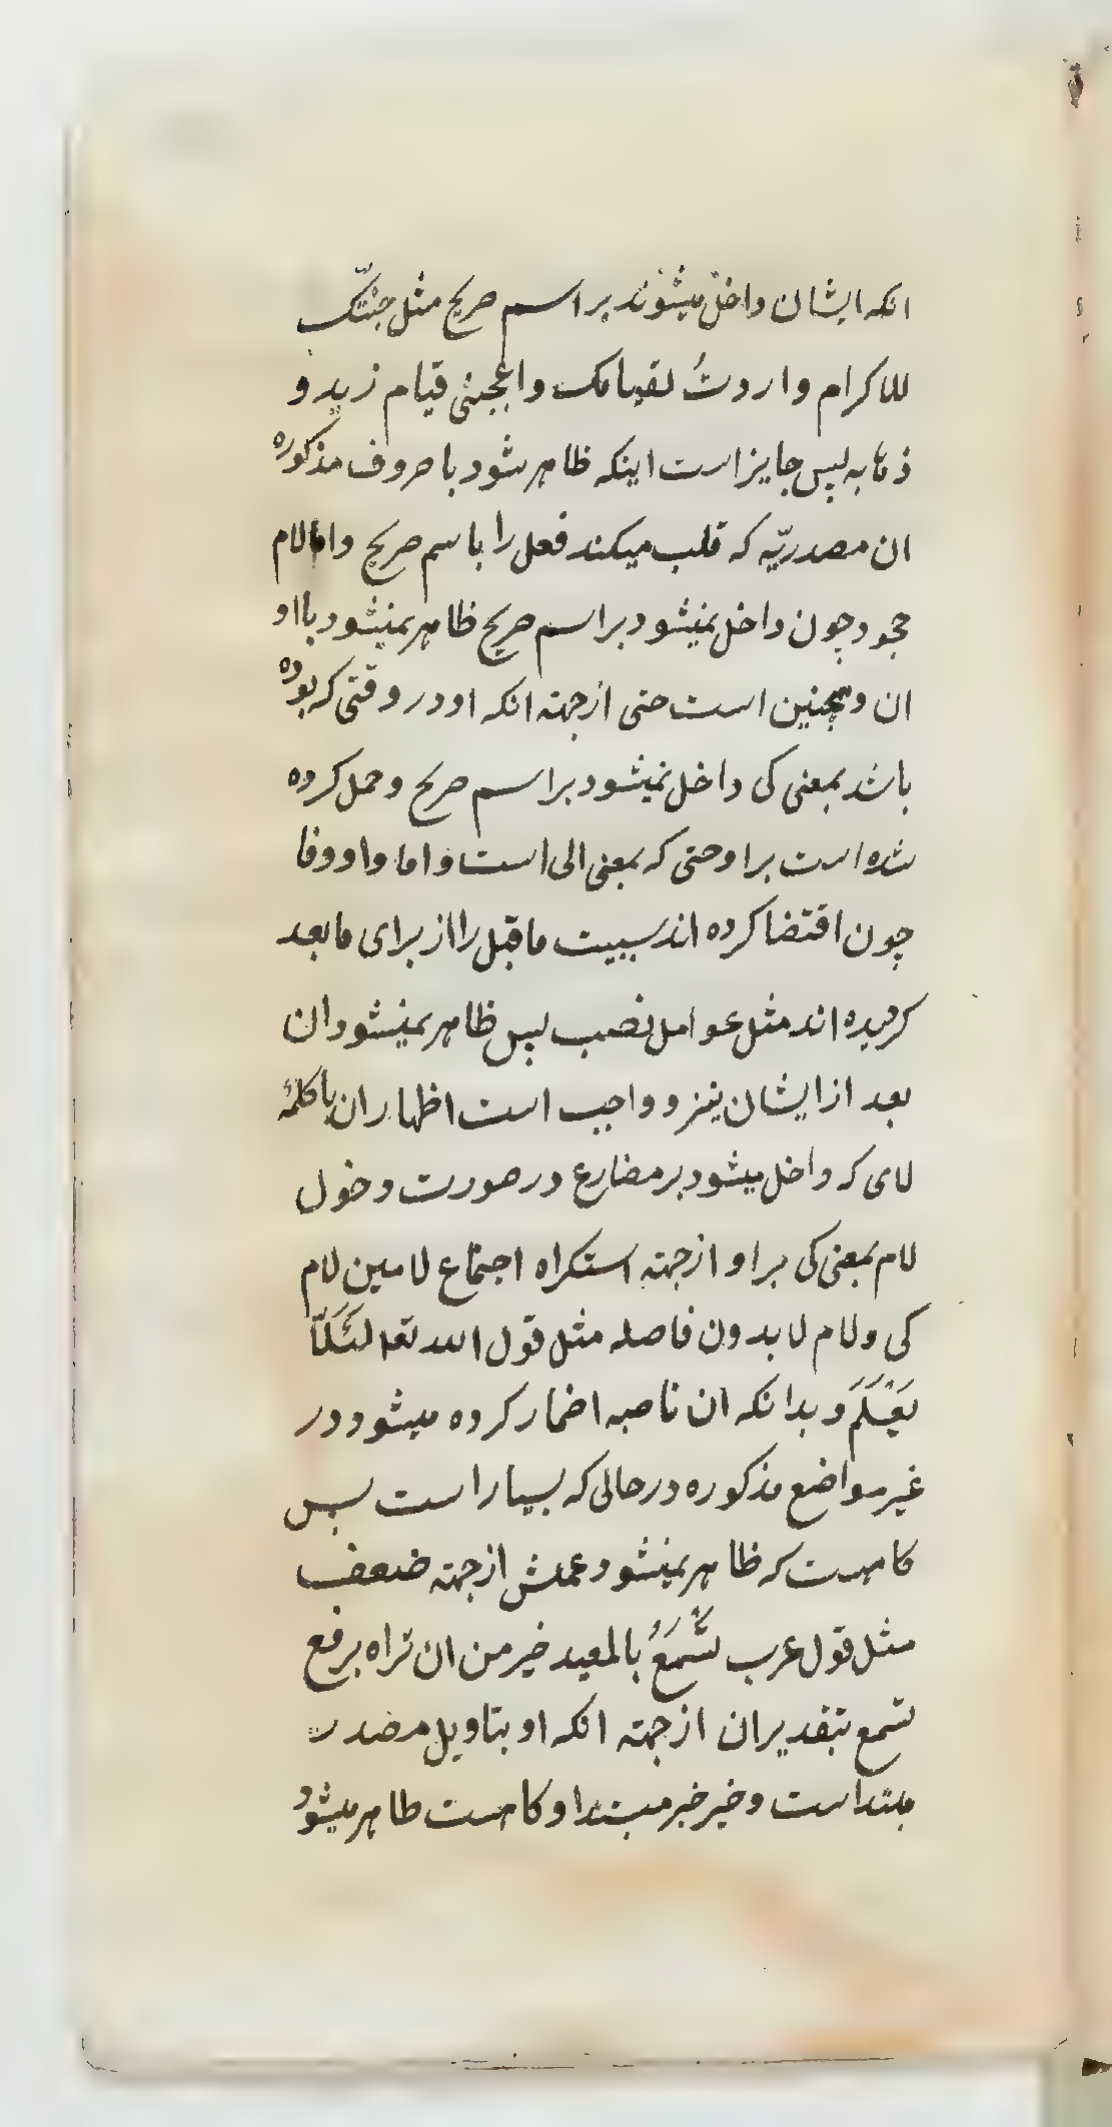 انکه ایشان داخل میشوند بر اسم صریح مثل جئتک
للاکرام و اردتُ لقیامک و اعجبنی قیام زید و
ذهابه پس جایز است اینکه ظاهر شود با حروف مذکوره
ان مصدریّه که قلب میکند فعل را باسم صریح و اما لام
جحود چون داخل نمیشود بر اسم صریح ظاهر نمیشود با او
ان و همچنین است حتی از جهته انکه او در وقتی که بوده
باشد بمعنی کی داخل نمیشود بر اسم صریح و حمل کرده
شده است بر او حتی که بمعنی الی است و اما واو و فا
چون اقتضا کرده اند سببیت ماقبل را از برای مابعد
کردیده اند مثل عوامل نصب پس ظاهر نمیشود ان
بعد از ایشان نیز و واجب است اظهار ان با کلمهٔ
لای که داخل میشود بر مضارع در صورت دخول
لام بمعنی کی بر او از جهته استکراه اجتماع لامین لام
کی و لام لا بدون فاصله مثل قول الله تعا لئَلَّا
یَعْلَمَ و بدانکه ان ناصبه اضمار کرده میشود در
غیر مواضع مذکوره در حالی که بسیار است پس
کاهست که ظاهر نمیشود عملش از جهته ضعف
مثل قول عرب تَسْمَعُ بالمعید خیر من ان تراه برفع
تسمع بتقدیر ان از جهته انکه او بتاویل مصدر
مبتداست و خیر خبر مبتدا و کاهست ظاهر میشود